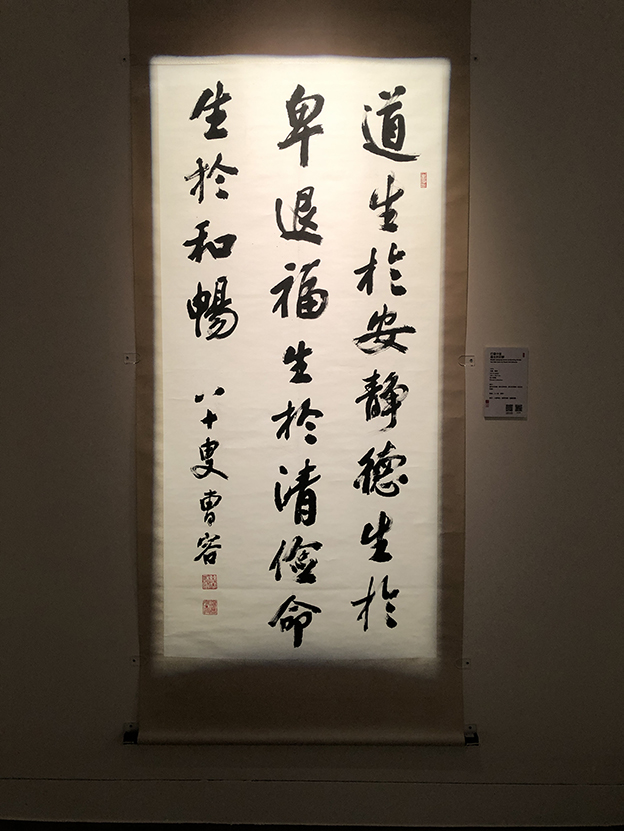 道生於安靜德生於
卑退福生於清儉命
生於和暢
八十叟曹容